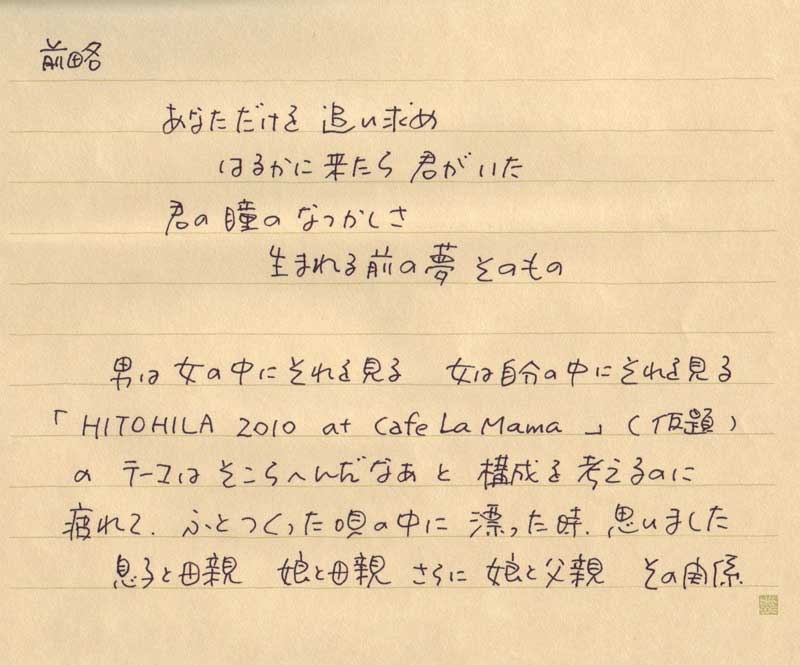 前略
あなただけを 追い求め
はるかに来たら 君がいた
君の瞳のなつかしさ
生まれる前の夢 そのもの
男は女の中にそれを見る 女は自分の中にそれを見る
「HITOHILA 2010 at Cafe La Mama」(仮題)
の テーマは そこらへんだなあと 構成を考えるのに
疲れて、ふとつくった唄の中に 漂った時、思いました
息子と母親 娘と母親 さらに 娘と父親 その関係